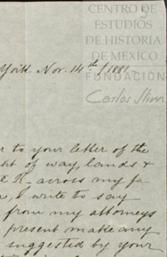 CENTRO DE
ESTUDIOS
DE HISTORIA
DE MEXICO
FUNDACIÓN
Carlos Slim
York. Nov. 14th/1881
r to your letter of the
ht of way, lands &
across my fa
I write to say
from my attorneys
present make any
suggested by your